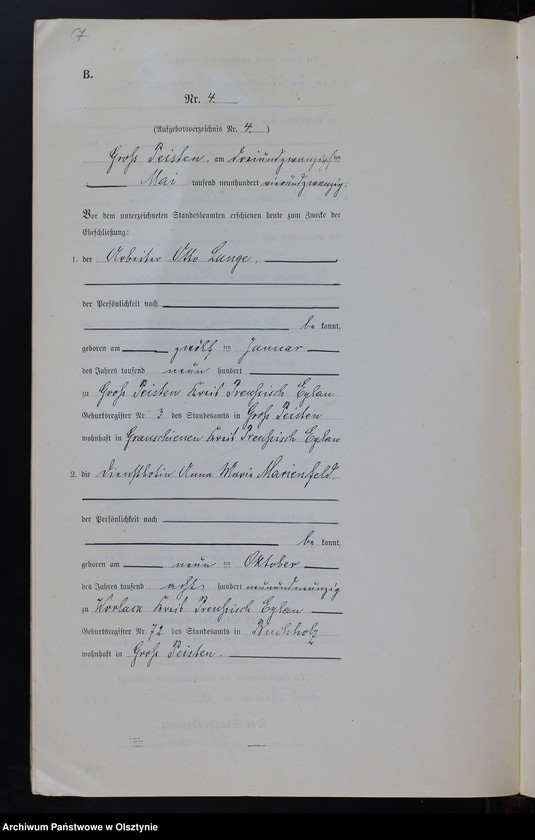 7
B.
Nr. 4.
(Aufgebotsverzeichnis Nr. 4.)
Groß Peisten, am dreiundzwanzigsten
Mai tausend neunhundert vierundzwanzig.
Vor dem unterzeichneten Standesbeamten erschienen heute zum Zwecke der
Eheschließung:
1. der Arbeiter Otto Lange,
der Persönlichkeit nach
be kannt,
geboren am zwölf ten Januar
des Jahres tausend neun hundert
zu Groß Peisten Kreis Preußisch Eylau
Geburtsregister Nr. 3 des Standesamts in Groß Peisten
wohnhaft in Grauschienen Kreis Preußisch Eylau
2. die Dienstbotin Anna Marie Marienfeld,
der Persönlichkeit nach
be kannt,
geboren am neun ten Oktober
des Jahres tausend acht hundert neunundneunzig
zu Worlack Kreis Preußisch Eylau
Geburtsregister Nr. 72 des Standesamts in Buchholz
wohnhaft in Groß Peisten.
Archiwum Państwowe w Olsztynie